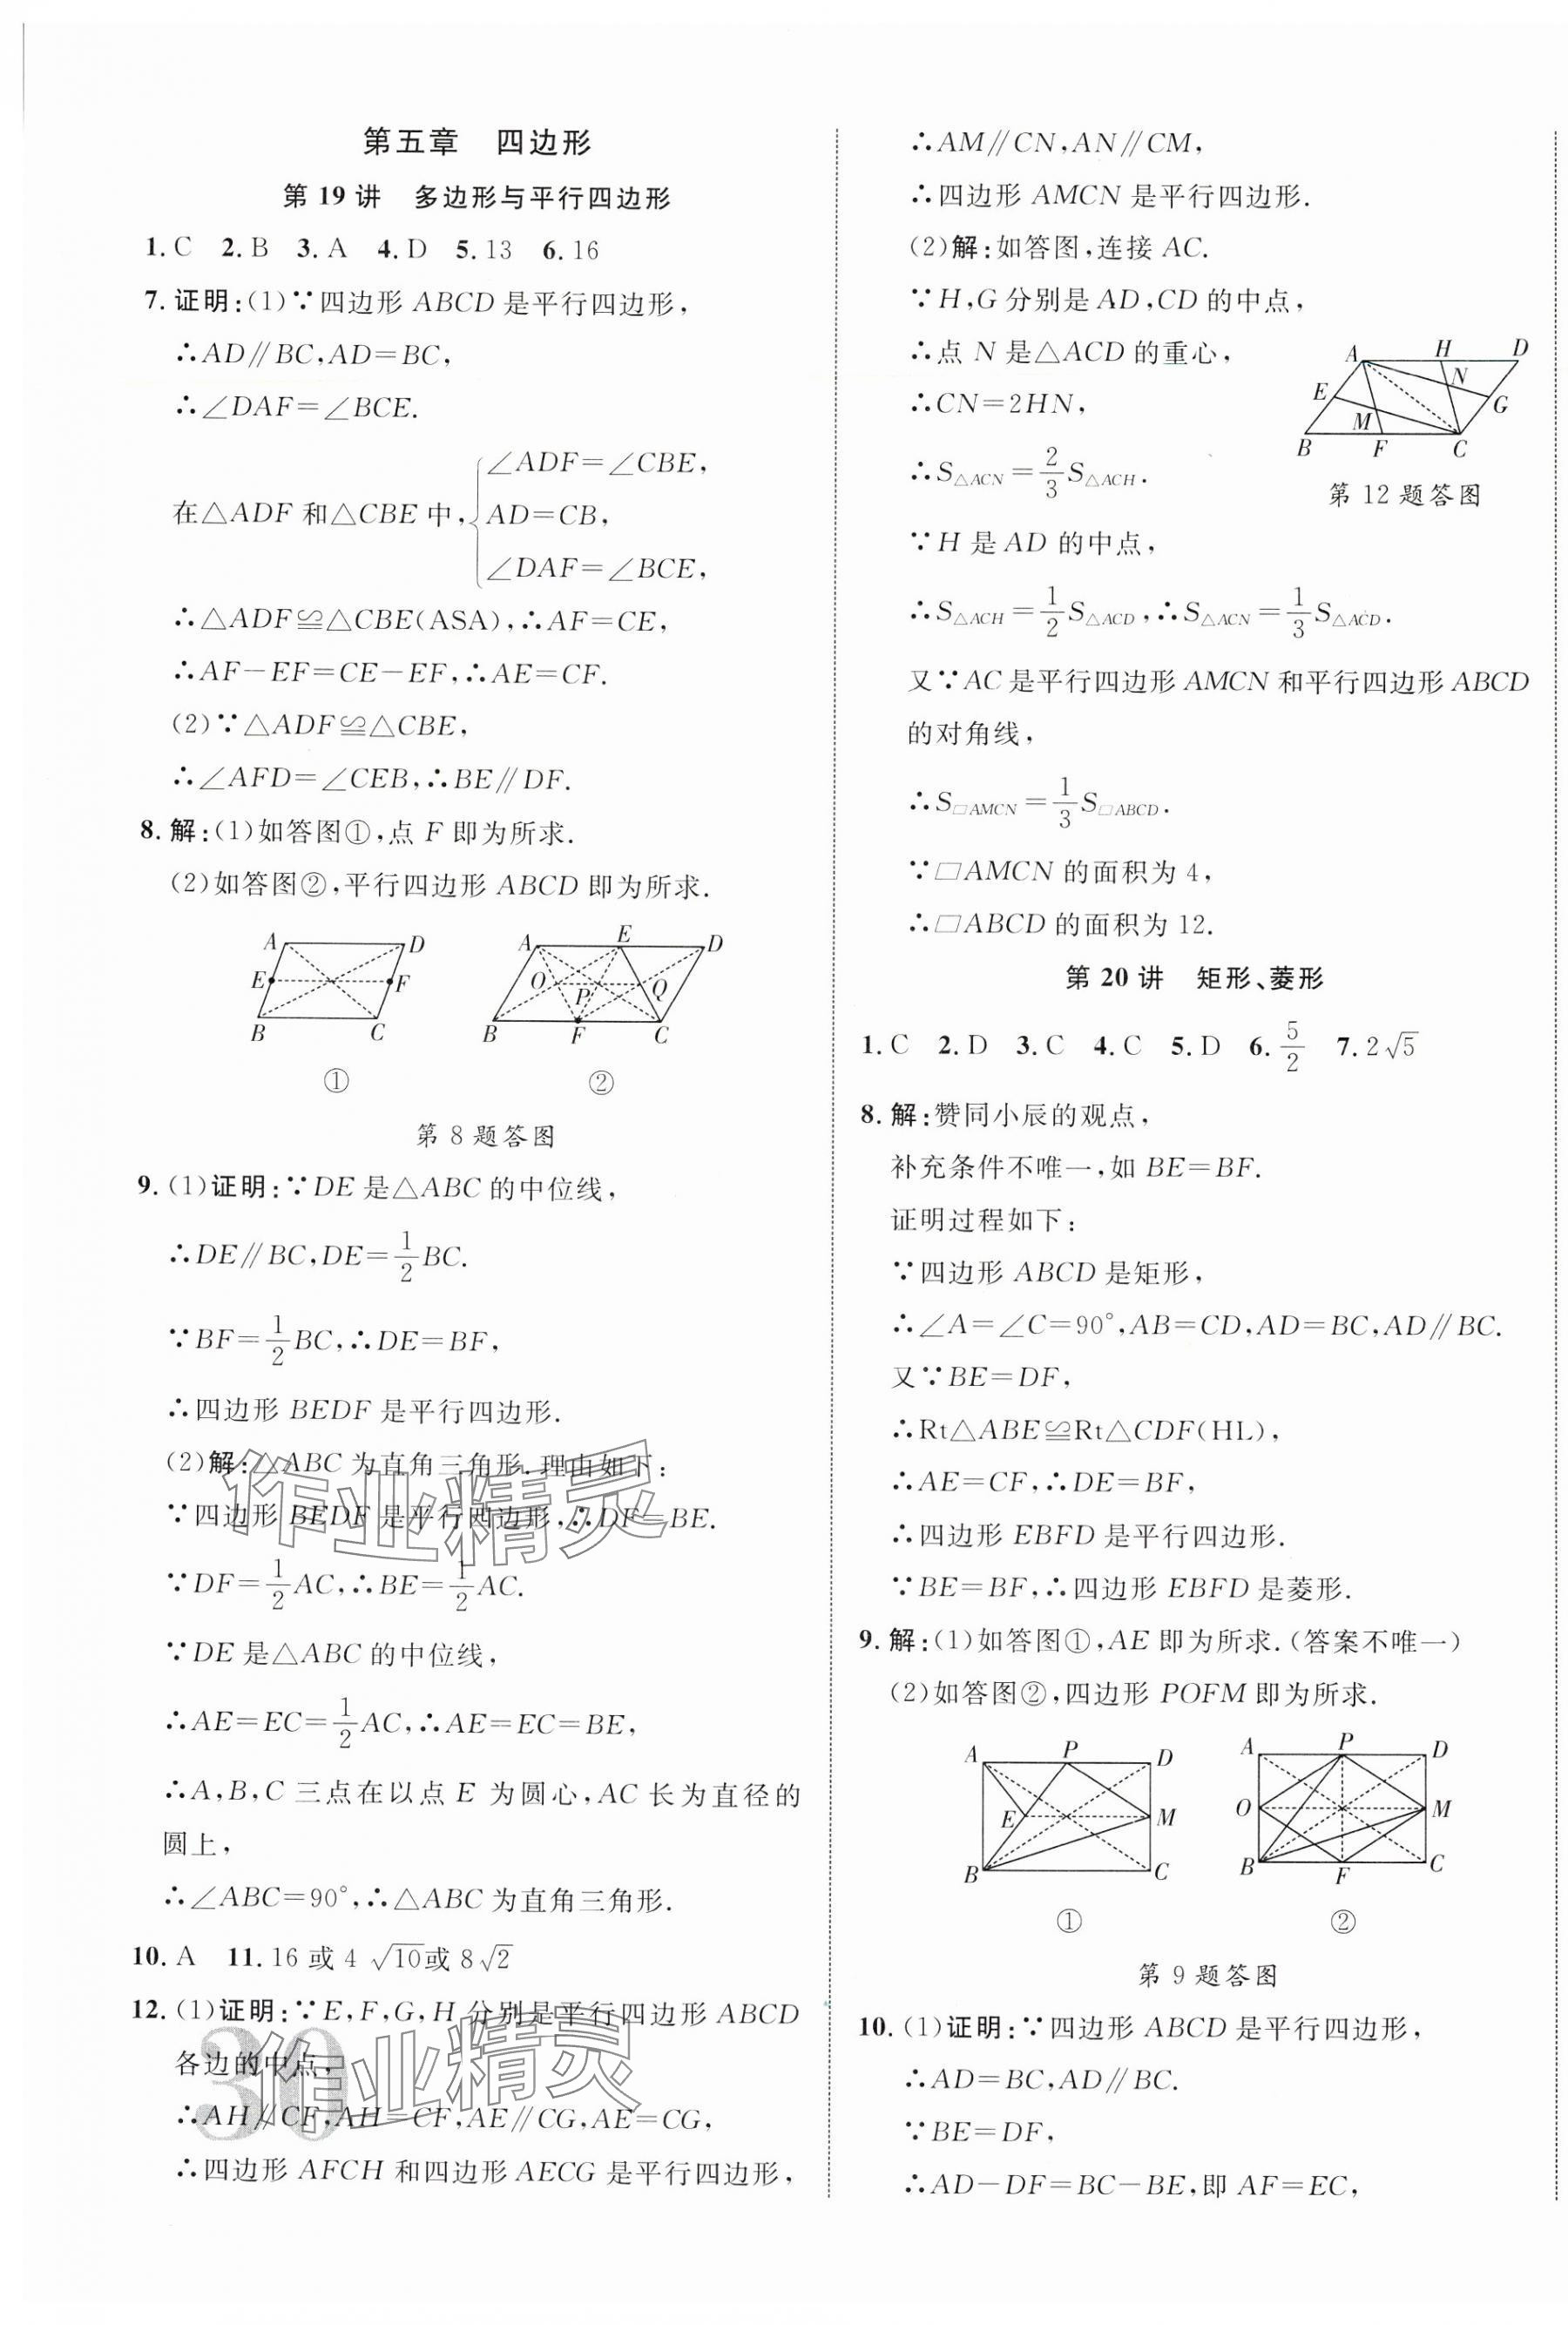 第五章 四边形
第 19 讲 多边形与平行四边形
1. C 2. B 3. A 4. D 5. 13 6. 16
7. 证明:(1)∵四边形 ABCD 是平行四边形,
∴AD∥BC,AD=BC,
∴∠DAF=∠BCE.
在△ADF 和△CBE 中,
∠ADF=∠CBE,
AD=CB,
∠DAF=∠BCE,
∴△ADF≌△CBE(ASA),∴AF=CE,
∴AF-EF=CE-EF,∴AE=CF.
(2)∵△ADF≌△CBE,
∴∠AFD=∠CEB,∴BE∥DF.
8. 解:(1)如答图①,点 F 即为所求.
(2)如答图②,平行四边形 ABCD 即为所求.
A D E F B C
A E D O P Q B F C
① ②
第 8 题答图
9. (1)证明:∵DE 是△ABC 的中位线,
∴DE∥BC,DE=1/2BC.
∵BF=1/2BC,∴DE=BF,
∴四边形 BEDF 是平行四边形.
(2)解:△ABC 为直角三角形.理由如下:
∵四边形 BEDF 是平行四边形,∴DF=BE.
∵DF=1/2AC,∴BE=1/2AC.
∵DE 是△ABC 的中位线,
∴AE=EC=1/2AC,∴AE=EC=BE,
∴A,B,C 三点在以点 E 为圆心,AC 长为直径的
圆上,
∴∠ABC=90°,∴△ABC 为直角三角形.
10. A 11. 16 或 4√10或 8√2
12. (1)证明:∵E,F,G,H 分别是平行四边形 ABCD
各边的中点,
∴AH∥CF,AH=CF,AE∥CG,AE=CG,
∴四边形 AFCH 和四边形 AECG 是平行四边形,
作业精灵
30 作业精灵
∴AM∥CN,AN∥CM,
∴四边形 AMCN 是平行四边形.
(2)解:如答图,连接 AC.
∵H,G 分别是 AD,CD 的中点,
∴点 N 是△ACD 的重心,
∴CN=2HN,
∴S△ACN=2/3S△ACH.
A H D E N G M B F C
第 12 题答图
∵H 是 AD 的中点,
∴S△ACH=1/2S△ACD,∴S△ACN=1/3S△ACD.
又∵AC 是平行四边形 AMCN 和平行四边形 ABCD
的对角线,
∴S□AMCN=1/3S□ABCD.
∵□AMCN 的面积为 4,
∴□ABCD 的面积为 12.
第 20 讲 矩形、菱形
1. C 2. D 3. C 4. C 5. D 6. 5/2 7. 2√5
8. 解:赞同小辰的观点,
补充条件不唯一,如 BE=BF.
证明过程如下:
∵四边形 ABCD 是矩形,
∴∠A=∠C=90°,AB=CD,AD=BC,AD∥BC.
又∵BE=DF,
∴Rt△ABE≌Rt△CDF(HL),
∴AE=CF,∴DE=BF,
∴四边形 EBFD 是平行四边形.
∵BE=BF,∴四边形 EBFD 是菱形.
9. 解:(1)如答图①,AE 即为所求.(答案不唯一)
(2)如答图②,四边形 POFM 即为所求.
A P D E M B C
A P D O M B F C
① ②
第 9 题答图
10. (1)证明:∵四边形 ABCD 是平行四边形,
∴AD=BC,AD∥BC.
∵BE=DF,
∴AD-DF=BC-BE,即 AF=EC,